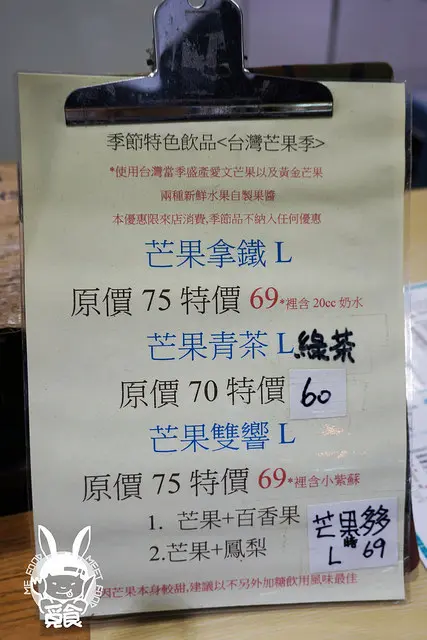 季節特色飲品<台灣芒果季>
*使用台灣當季盛產愛文芒果以及黃金芒果
兩種新鮮水果自製果醬
本優惠限來店消費,季節品不納入任何優惠
芒果拿鐵 L
原價 75 特價 69*裡含 20cc 奶水
芒果青茶 L 綠茶
原價 70 特價 60
芒果雙響 L
原價 75 特價 69*裡含小紫蘇
1. 芒果+百香果
2.芒果+鳳梨
芒果多多
L 69
因芒果本身較甜,建議以不另外加糖飲用風味最佳
ME FOOD
MEET FOOD
覓食